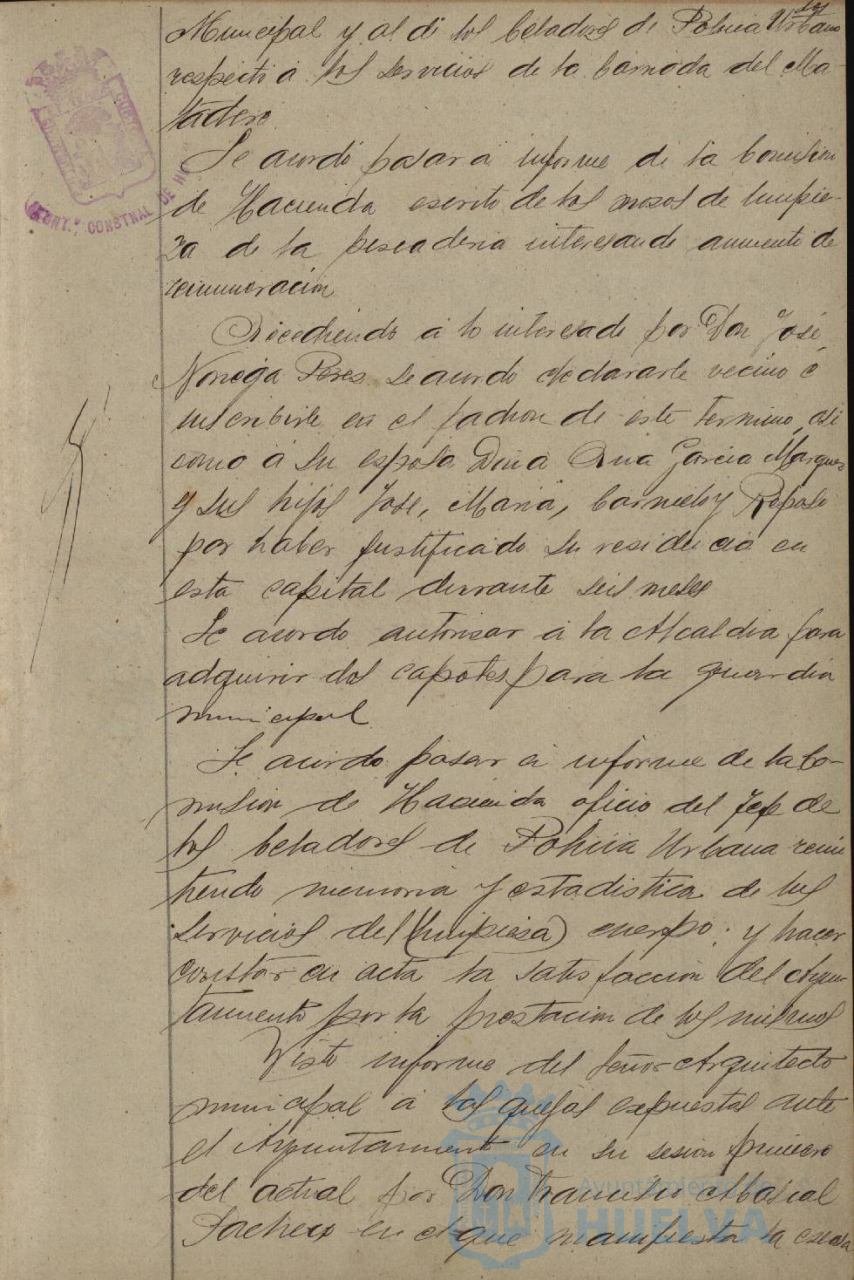 Municipal y al di los beladores de Policia Urbana
respecto á los servicios de la barriada del Ma-
tadero
Se acordó pasar a informe de la Comision
de Hacienda escrito de los mosos de limpie-
za de la pescaderia interesando aumento de
remuneracion
Accediendo á lo interesado por Don José
Noriega Peres se acordo declararle vecino é
inscribirle en el padron de este termino, asi
como á su esposa Doña Ana Garcia Marquez
y sus hijos Jose, Maria, Carmelo y
por haber justificado su residencia en
esta capital durante seis meses
Se acordo autorisar á la Alcaldia para
adquirir dos capotes para la guardia
municipal
Se acordo pasar a informe de la Co-
mision de Hacienda oficio del Jefe de
los beladores de Policia Urbana remi
tiendo memoria y estadistica de los
servicios del (limpiesa) cuerpo; y hacer
constar en acta la satisfaccion del Ayun
tamiento por la prestacion de los mismos
Visto informe del Señor Arquitecto
municipal a las quejas expuestas ante
el Ayuntamiento en su sesion primero
del actual por Don Francisco
Pacheco en el que manifiesta la
CONSTNAL DE
Ayuntamiento de
HUELVA